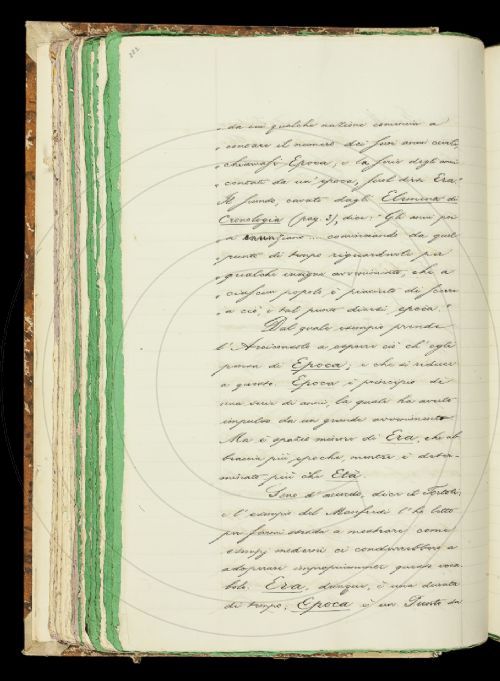 " da cui qualche nazione comincia a
" contare il numero dei suoi anni civili
" chiamasi Epoca; e la serie degli anni
" contati da un' epoca, suol dirsi Era."
Il secondo, cavato dagli Elementi di
Cronologia (pag. 3), dice: " Gli anni poi
" a cominciando da quel
" punto di tempo riguardevole per
" qualche insigne avvenimento, che a
" ciascun popolo è piaciuto di
" a ciò, e tal punto dicesi, epoca."
Dal quale esempio prende
l'Arciconsolo a esporre ciò ch' egli
pensa di Epoca; e che si riduce
a questo. Epoca è principio di
una serie di anni, la quale ha avuto
impulso da un grande avvenimento.
Ma è spazio minore di Era, che ab-
braccia più epoche, mentre è deter-
minato più che Età.
Sono d' accordo, dice il Tortoli;
e l' esempio del Manfredi l' ho letto
per farmi strada a mostrare come
esempj medesimi ci condurrebbero a
adoperare impropriamente queste voca-
boli. Era, dunque, è una durata
di tempo; Epoca è un Punto da